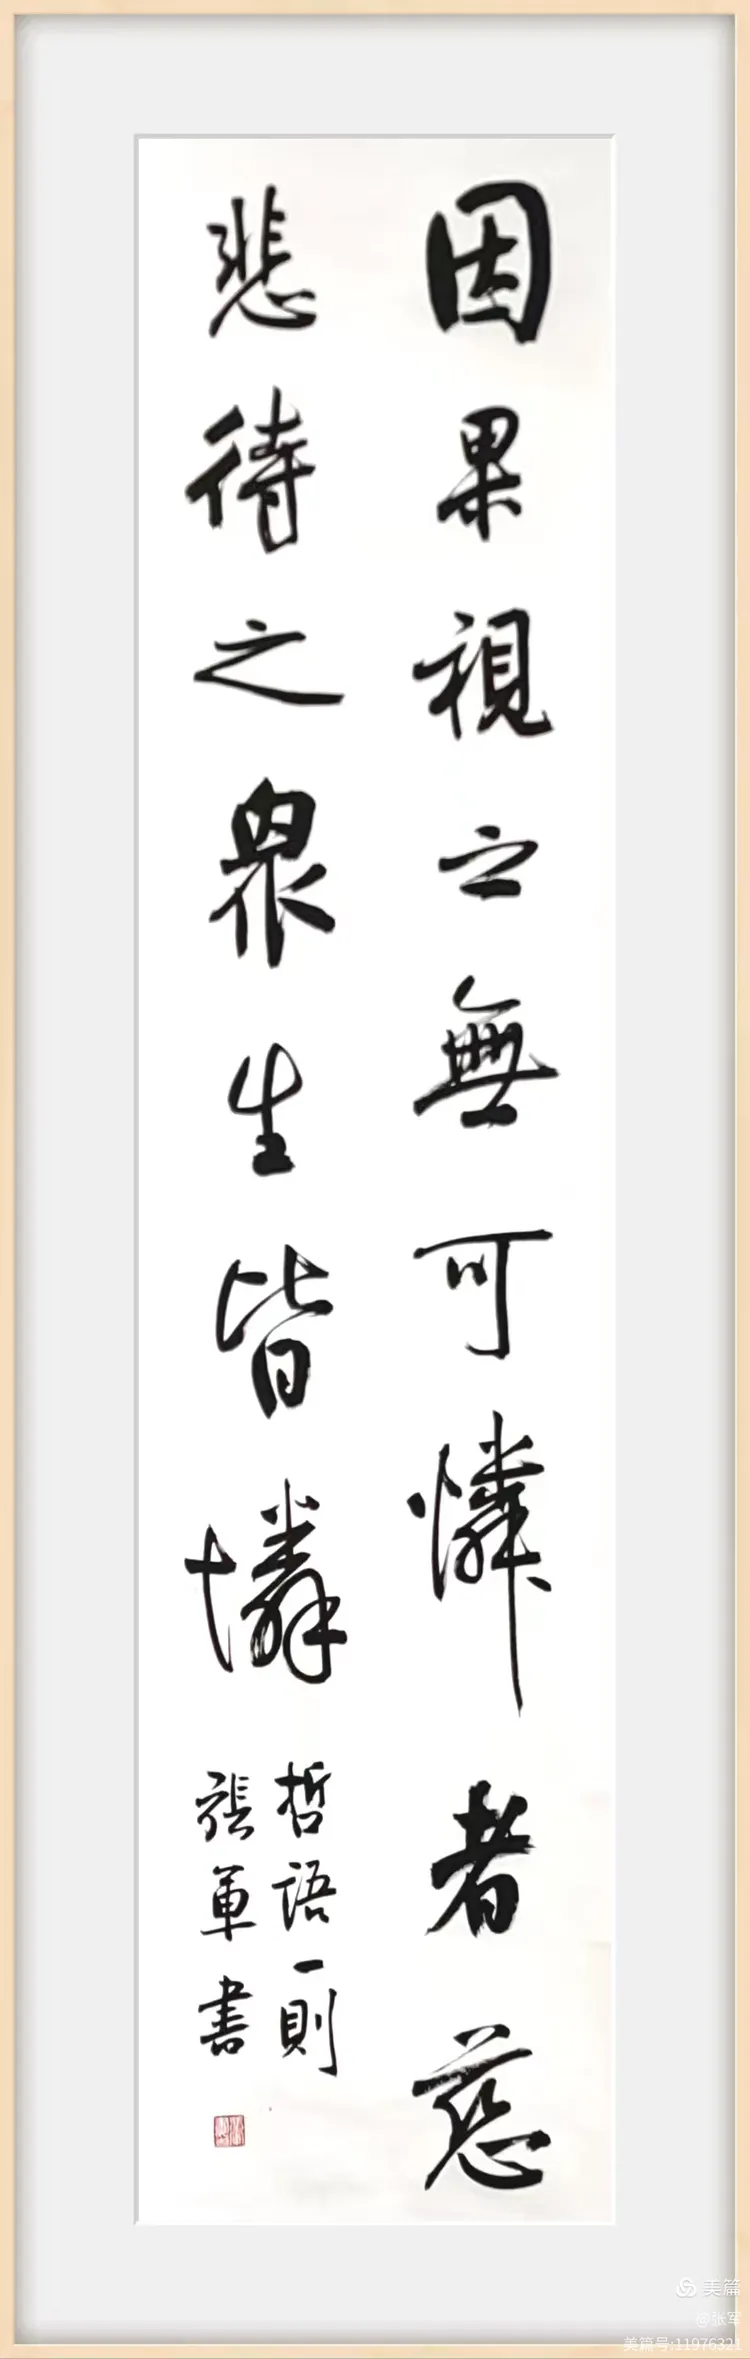 因果視之無可憐者慈
悲待之眾生皆憐
哲語一則
張軍書
美篇
@张军
美篇号:11976321